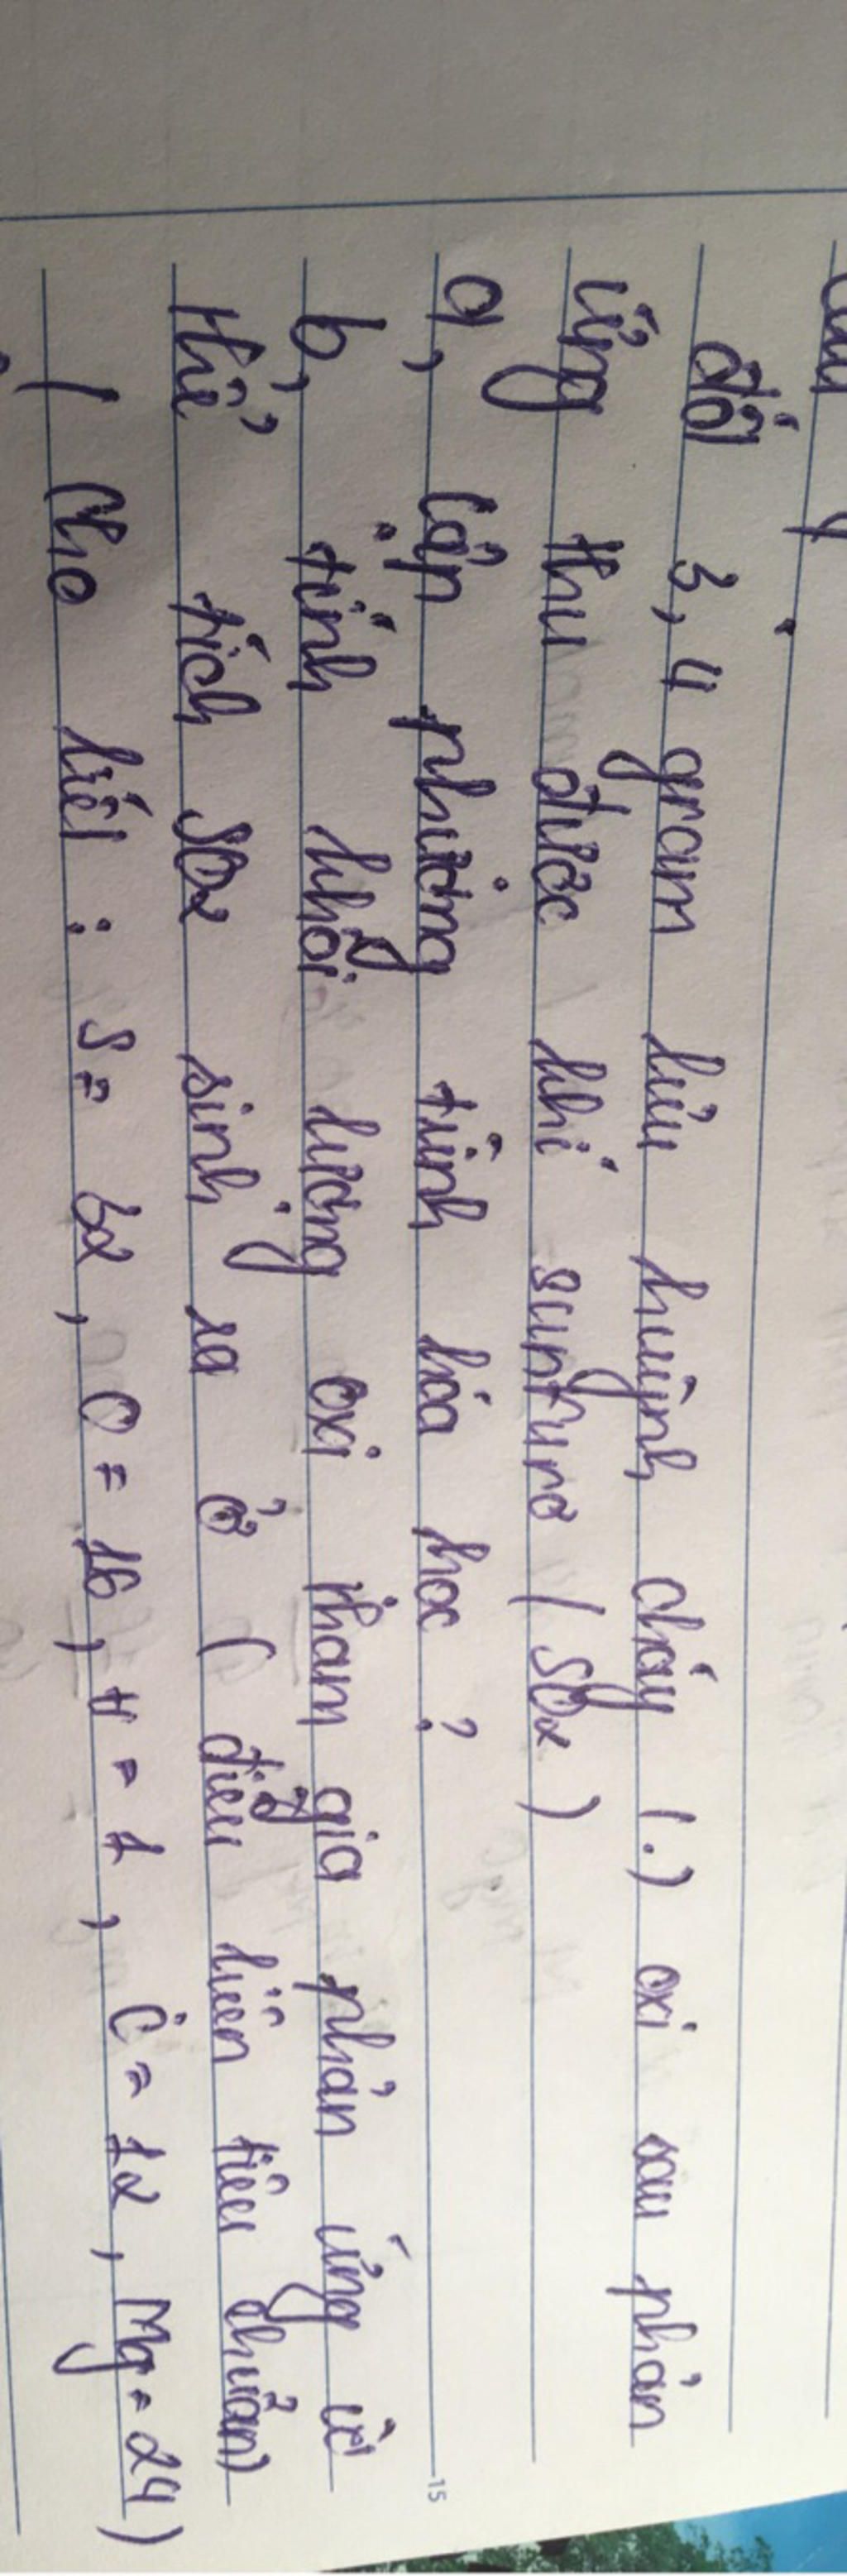 đốt 3,4 gram lưu huỳnh cháy (.) oxi sau phản
ứng thu được khí sunfurơ (SO2)
a, lập phương trình hóa học ?
b, tính khối lượng oxi tham gia phản ứng và
thể tích SO2 sinh ra ở (điều kiện tiêu chuẩn)
(cho biết : S = 32, O = 16, H = 1, C = 12, Mg = 24)
15